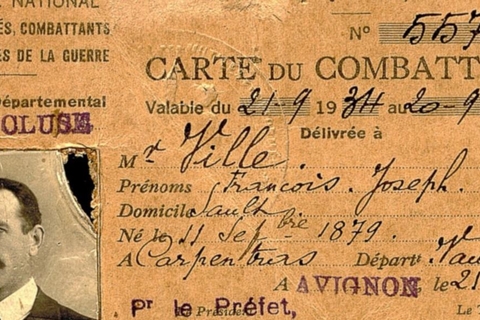 NATIONAL
ÉS, COMBATTANTS
ES DE LA GUERRE
Départemental
CLUSE
Nº 557
CARTE DU COMBATT
Valable du 21-9 1934 au 20-9
Délivrée à
Mr Ville.
Prénoms François, Joseph.
Domicile Sault
Né le 11 Sepbre 1879.
A Carpentras Départt Vau
A AVIGNON le 21
Pr le Préfet,
Le Président
Le T